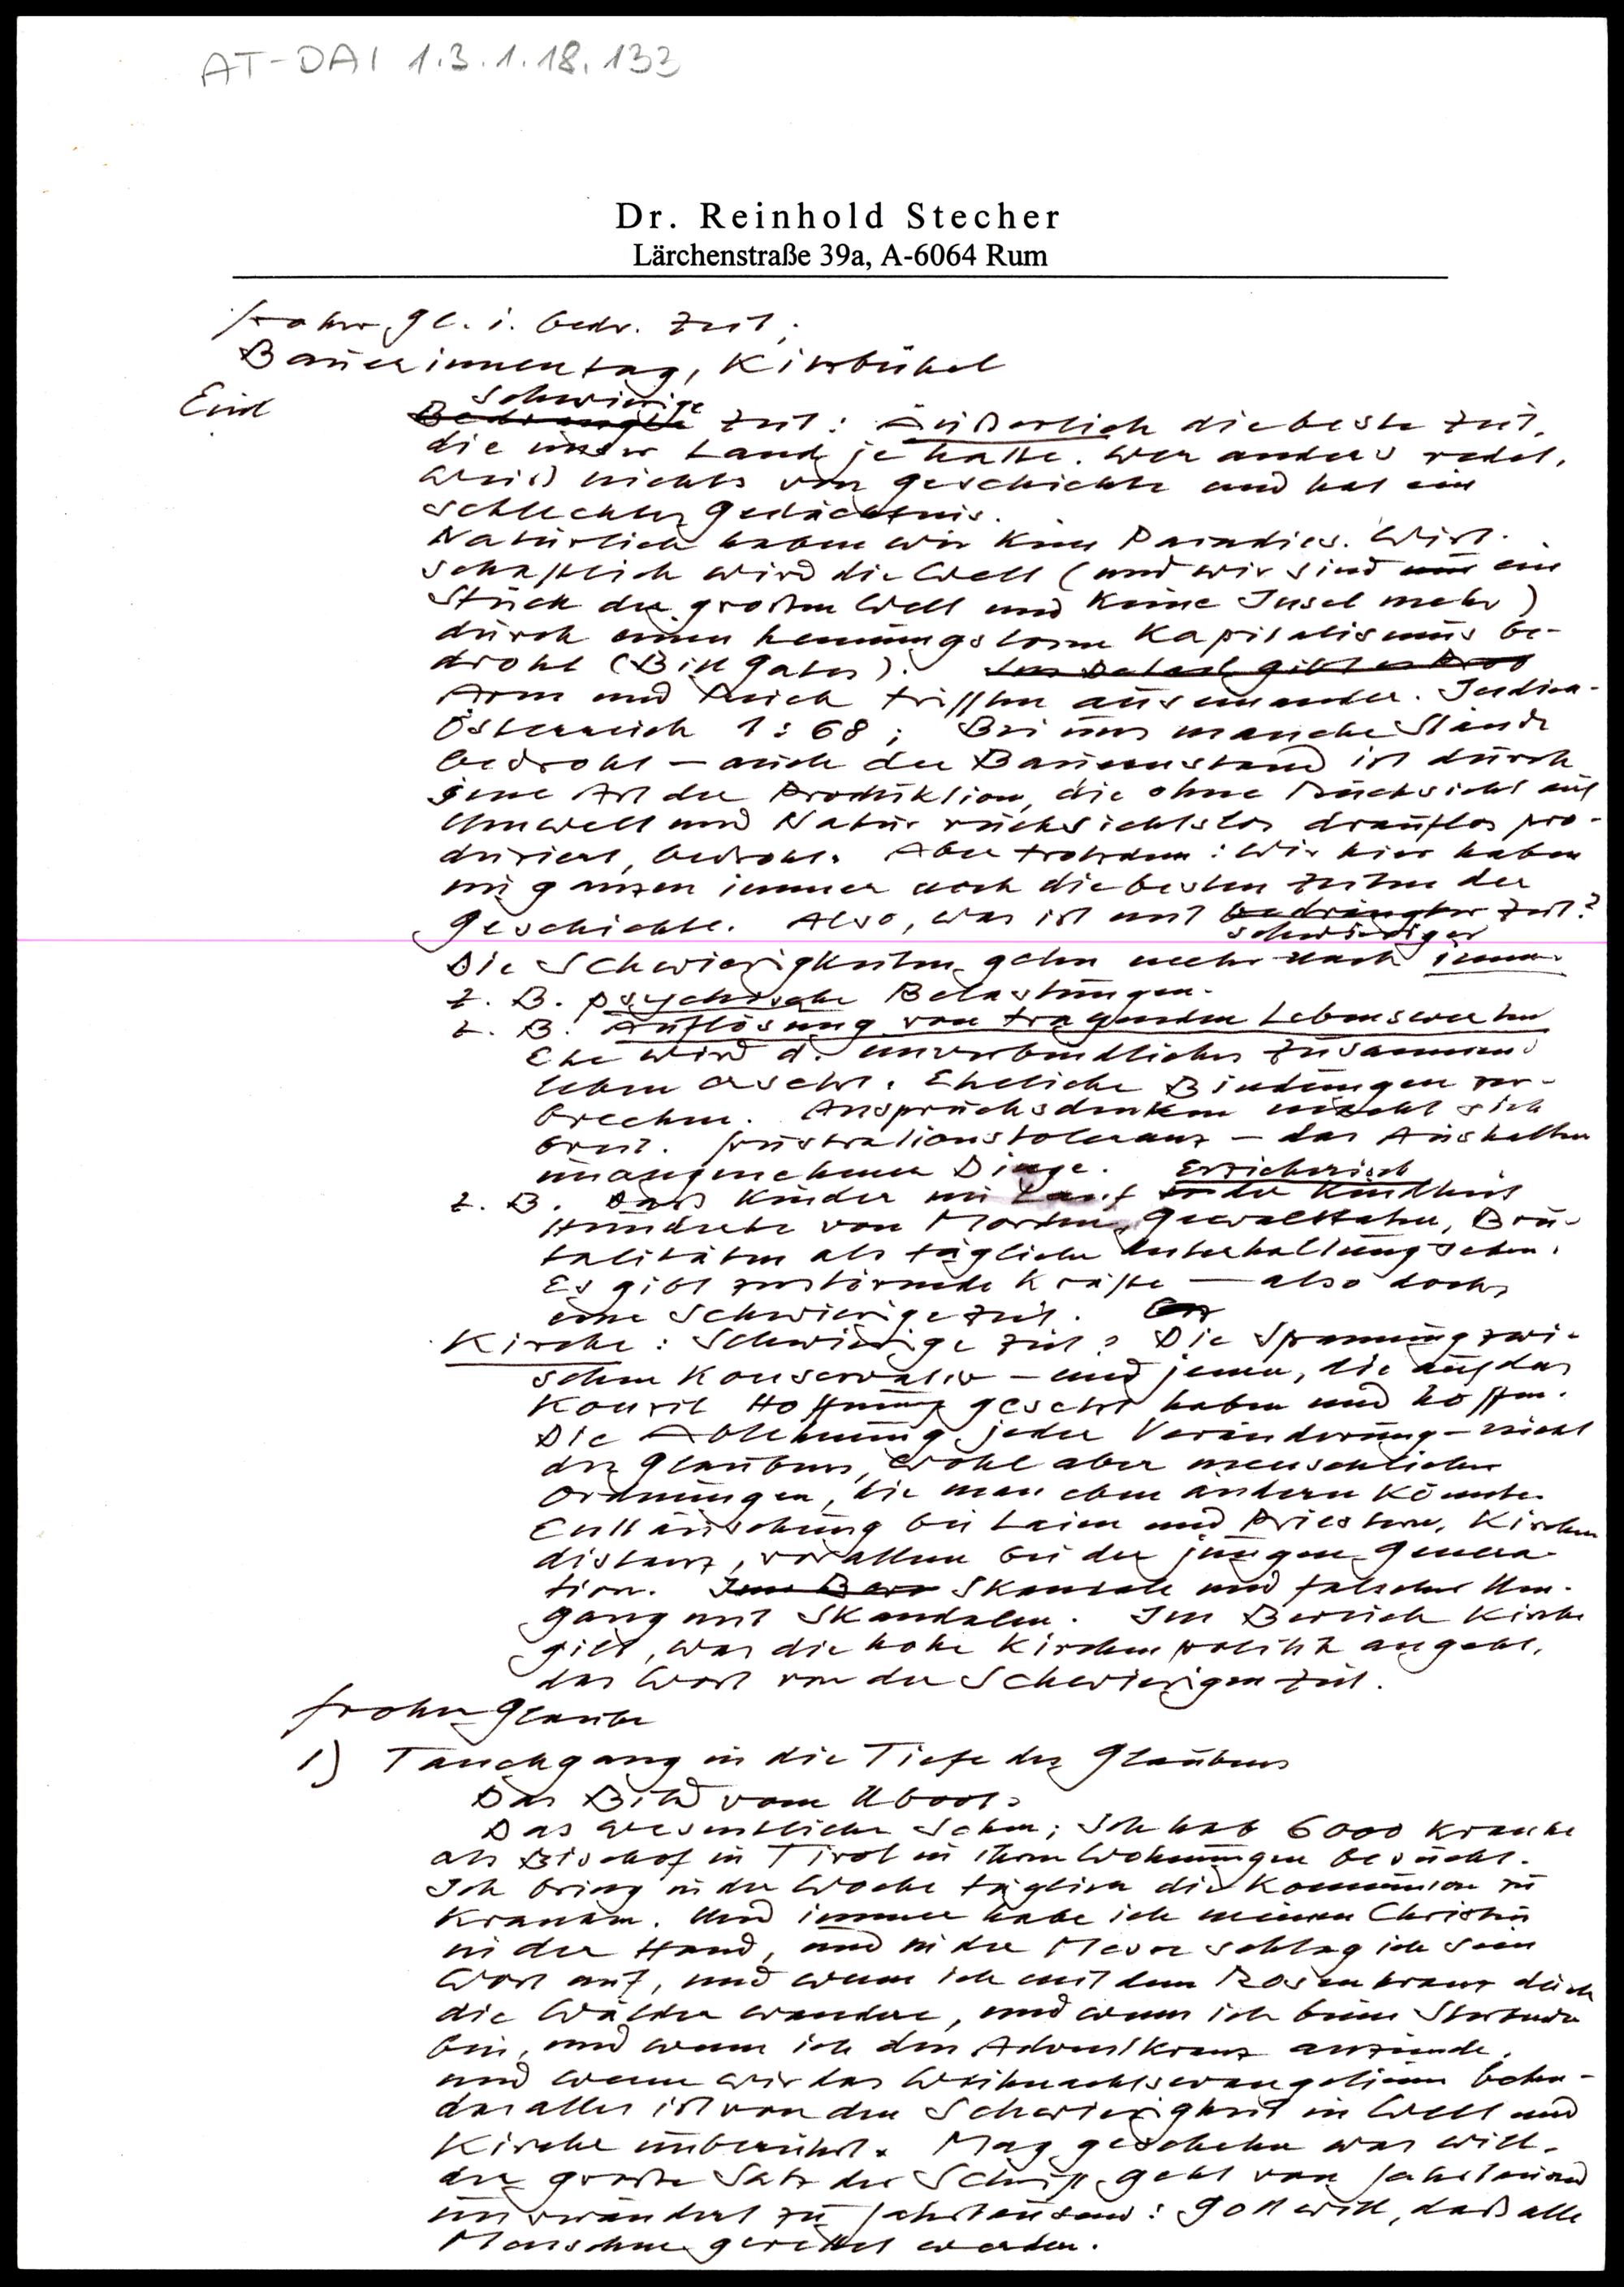 AT-DAI 1.3.1.18.133
Dr. Reinhold Stecher
Lärchenstraße 39a, A-6064 Rum
froher Gl. i. bedr. Zeit;
Bäuerinnentag, Kitzbühel
Einl
Schwierige
Bedrängte Zeit: Äußerlich die beste Zeit,
die unser Land je hatte. Wer anders redet,
weiß nichts von Geschichte und hat ein
schlechtes Gedächtnis.
Natürlich haben wir kein Paradies. Wirt-
schaftlich wird die Welt (und wir sind nur ein
Stück der großen Welt und keine Insel mehr)
durch einen hemmungslosen Kapitalismus be-
droht (Bill Gates).
Arm und Reich triften auseinander. Indien-
Österreich 1:68; Bei uns manche Stände
bedroht – auch der Bauernstand ist durch
jene Art der Produktion, die ohne Rücksicht auf
Umwelt und Natur rücksichtslos drauflos pro-
duziert, bedroht. Aber trotzdem: Wir hier haben
im ganzen immer noch die besten Zeiten der
Geschichte. Also, was ist mit bedrängter Zeit?
schwieriger
Die Schwierigkeiten gehen mehr nach innen
z. B. psychische Belastungen.
z. B. Auflösung von tragenden Lebenswerten
Ehe wird d. unverbindliches Zusammen-
leben ersetzt. Eheliche Bindungen zer-
brechen. Anspruchsdenken macht sich
breit. Frustrationstoleranz – das Aushalten
unangenehmer Dinge. Erzieherisch
z. B. Daß Kinder im Lauf der Kindheit
Hunderte von Morden, Gewalttaten, Bru-
talitäten als tägliche Unterhaltung sehen.
Es gibt zerstörende Kräfte – also doch
eine schwierige Zeit.
Kirche: Schwierige Zeit? Die Spannung zwi-
schen Konservativ – und jenen, die auf das
Konzil Hoffnung gesetzt haben und hoffen.
Die Ablehnung jeder Veränderung – nicht
des Glaubens, wohl aber menschlicher
Ordnungen, die man eben ändern könnte.
Enttäuschung bei Laien und Priestern, Kirchen
distanz, vor allem bei der jungen Genera-
tion. Skandale und falscher Um-
gang mit Skandalen. Im Bereich Kirche
gilt, was die hohe Kirchenpolitik angeht,
das Wort von der schwierigen Zeit.
froher Glaube
1) Tauchgang in die Tiefe des Glaubens
Das Bild vom Uboot.
Das Wesentliche sehen; Ich hab 6000 Kranke
als Bischof in Tirol in ihren Wohnungen besucht.
Ich bring in der Woche täglich die Kommunion zu
Kranken. Und immer habe ich meinen Christus
in der Hand, und in der Messe schlag ich sein
Wort auf, und wenn ich mit dem Rosenkranz durch
die Wälder wandere, und wenn ich beim Sterbenden
bin, und wenn ich den Adventkranz anzünde,
und wenn wir das Weihnachtsevangelium beten –
das alles ist von den Schwierigkeit in Welt und
Kirche unberührt. Mag geschehen was will.
der große Satz der Schrift geht von Jahrtausend
unverändert zu Jahrtausend: Gott will, daß alle
Menschen gerettet werden.